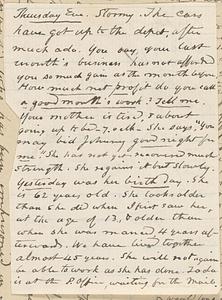 Thursday Eve. Stormy. The cars
have got up to the depot, after
much ado. You say, your last
month's business has not afforded
you so much gain as the month before.
How much net profit do you call
a good month's work? Tell me.
Your mother is tired, & about
going up to bed - 7, o.clk. She says, "You
may bid Johnny good night for
me." She has not yet recovered much
strength. She regains it but slowly.
Yesterday was her birth day. She
is 62 years old. She looks older
than she did when I first saw her
at the age of 13, & older than
when she was married, 4 years af-
terwards. We have lived together
almost 45 years. She will not again
be able to work as she has done. Zada
is at the P. Office, waiting for the Mail